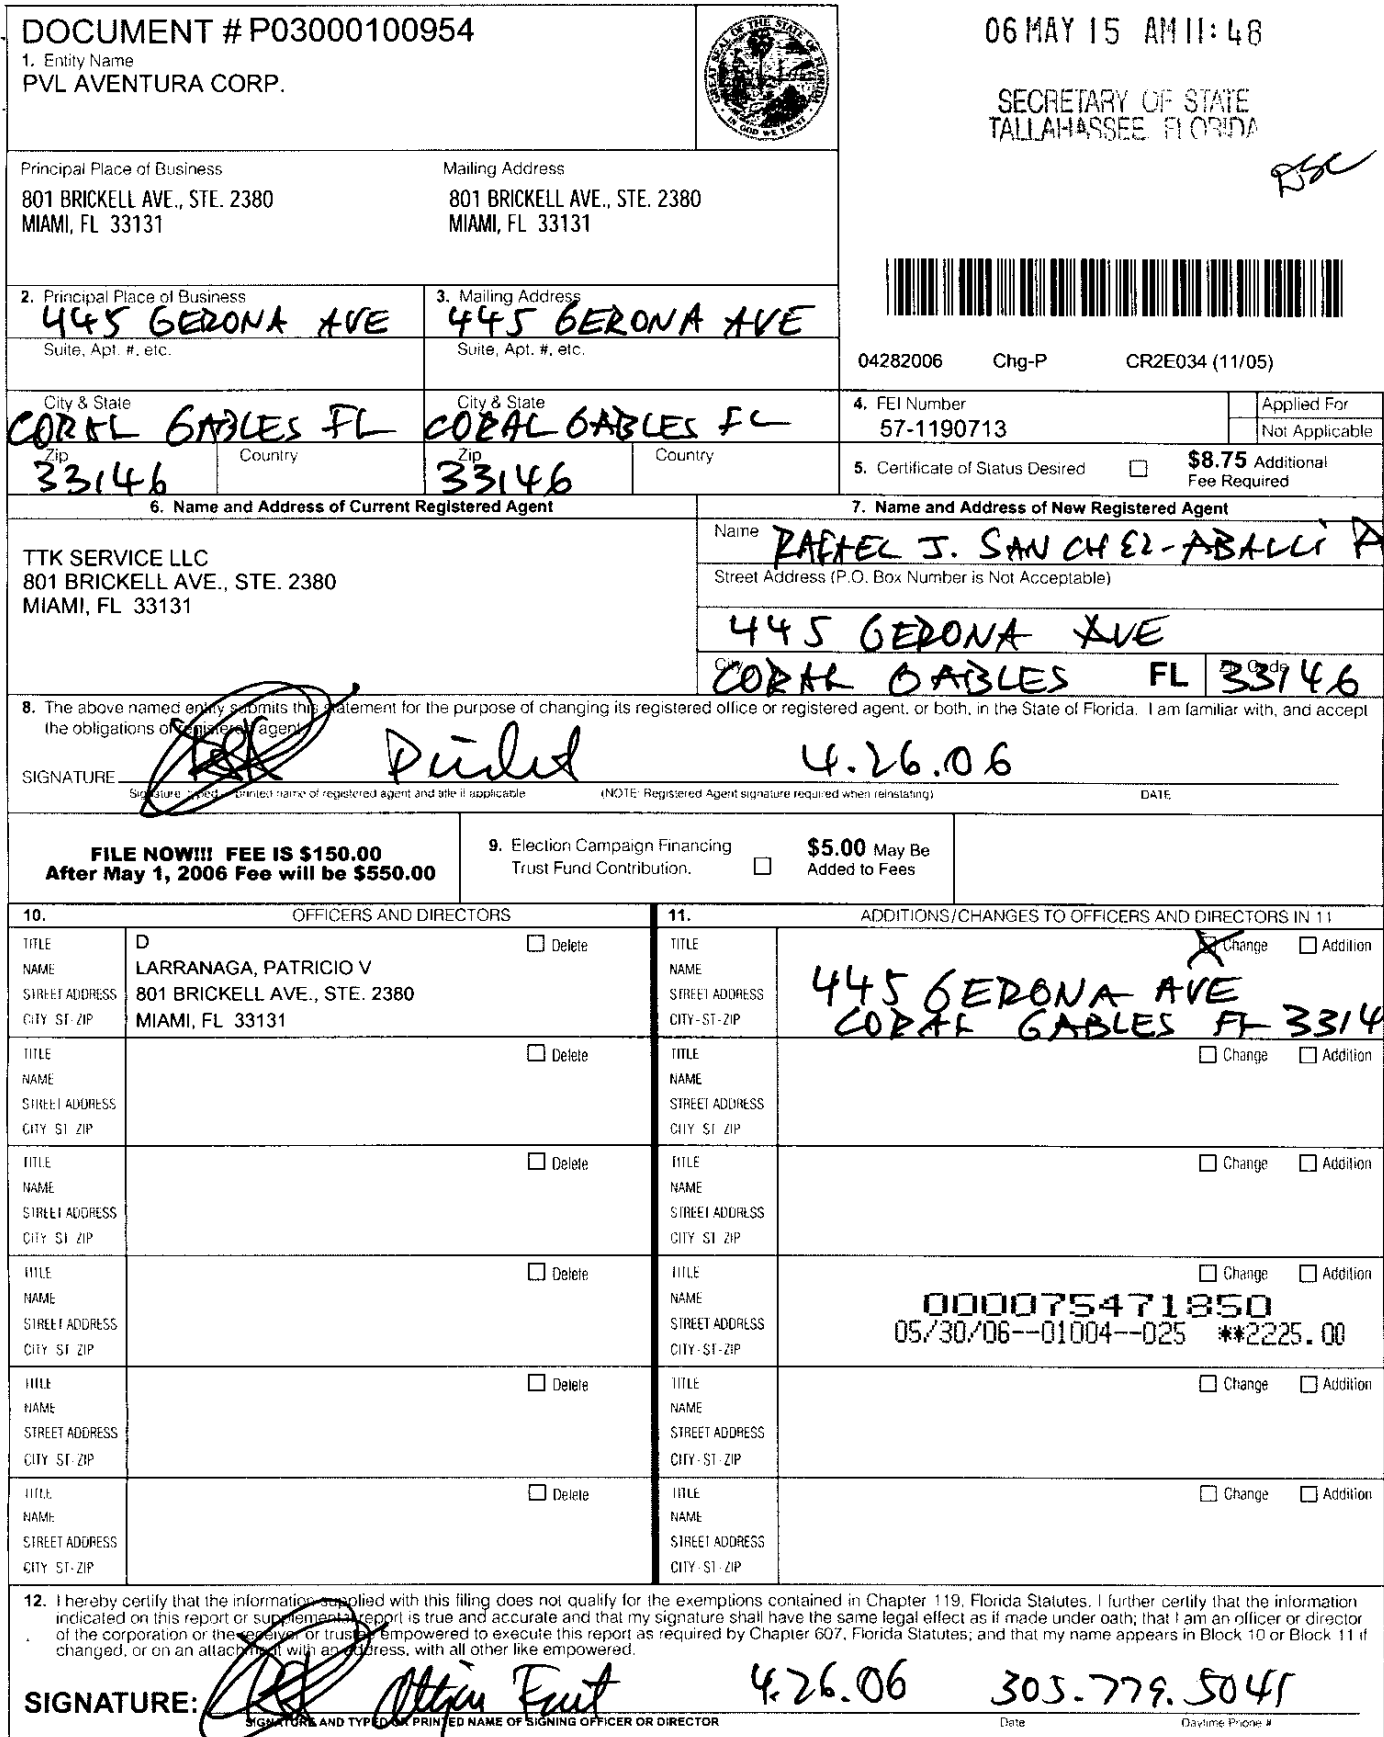 DOCUMENT # P03000100954
1. Entity Name
PVL AVENTURA CORP.
GREAT SEAL OF THE STATE OF FLORIDA
IN GOD WE TRUST
06 MAY 15 AM 11:48
SECRETARY OF STATE
TALLAHASSEE, FLORIDA
Principal Place of Business
801 BRICKELL AVE., STE. 2380
MIAMI, FL 33131
Mailing Address
801 BRICKELL AVE., STE. 2380
MIAMI, FL 33131
2. Principal Place of Business
445 GERONA AVE
Suite, Apt. #, etc.
City & State
CORAL GABLES FL
Zip
33146
Country
3. Mailing Address
445 GERONA AVE
Suite, Apt. #, etc.
City & State
CORAL GABLES FL
Zip
33146
Country
04282006 Chg-P CR2E034 (11/05)
4. FEI Number
57-1190713
Applied For
Not Applicable
5. Certificate of Status Desired
$8.75 Additional
Fee Required
6. Name and Address of Current Registered Agent
TTK SERVICE LLC
801 BRICKELL AVE., STE. 2380
MIAMI, FL 33131
7. Name and Address of New Registered Agent
Name RAFAEL J. SANCHEZ-ABALLI PA
Street Address (P.O. Box Number is Not Acceptable)
445 GERONA AVE
City CORAL GABLES FL Zip Code 33146
8. The above named entity submits this statement for the purpose of changing its registered office or registered agent, or both, in the State of Florida. I am familiar with, and accept
the obligations of registered agent.
SIGNATURE 4.26.06
Signature, typed or printed name of registered agent and title if applicable (NOTE: Registered Agent signature required when reinstating) DATE
FILE NOW!!! FEE IS $150.00
After May 1, 2006 Fee will be $550.00
9. Election Campaign Financing
Trust Fund Contribution.
$5.00 May Be
Added to Fees
10. OFFICERS AND DIRECTORS
TITLE D Delete
NAME LARRANAGA, PATRICIO V
STREET ADDRESS 801 BRICKELL AVE., STE. 2380
CITY ST-ZIP MIAMI, FL 33131
TITLE Delete
NAME
STREET ADDRESS
CITY ST ZIP
TITLE Delete
NAME
STREET ADDRESS
CITY ST ZIP
TITLE Delete
NAME
STREET ADDRESS
CITY ST ZIP
TITLE Delete
NAME
STREET ADDRESS
CITY ST-ZIP
TITLE Delete
NAME
STREET ADDRESS
CITY ST-ZIP
11. ADDITIONS/CHANGES TO OFFICERS AND DIRECTORS IN 11
TITLE Change Addition
NAME
STREET ADDRESS 445 GERONA AVE
CITY-ST-ZIP CORAL GABLES FL 3314
TITLE Change Addition
NAME
STREET ADDRESS
CITY ST ZIP
TITLE Change Addition
NAME
STREET ADDRESS
CITY ST ZIP
TITLE Change Addition
NAME 000075471850
STREET ADDRESS 05/30/06--01004--025 **2225.00
CITY-ST-ZIP
TITLE Change Addition
NAME
STREET ADDRESS
CITY-ST-ZIP
TITLE Change Addition
NAME
STREET ADDRESS
CITY-ST-ZIP
12. I hereby certify that the information supplied with this filing does not qualify for the exemptions contained in Chapter 119, Florida Statutes. I further certify that the information
indicated on this report or supplemental report is true and accurate and that my signature shall have the same legal effect as if made under oath; that I am an officer or director
of the corporation or the receiver or trustee empowered to execute this report as required by Chapter 607, Florida Statutes; and that my name appears in Block 10 or Block 11 if
changed, or on an attachment with an address, with all other like empowered.
SIGNATURE: 4.26.06 305.779.5041
SIGNATURE AND TYPED OR PRINTED NAME OF SIGNING OFFICER OR DIRECTOR Date Daytime Phone #